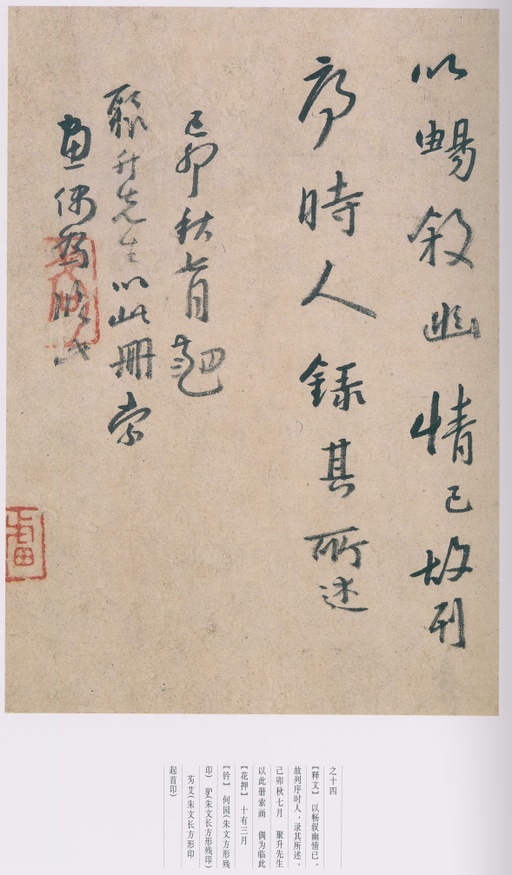 以暢叙幽情已故列
序時人録其所述
己卯秋七月
聚升先生以此冊索
畫偶為臨此
之十四
【释文】 以畅叙幽情已。
故列序时人，录其所述。
己卯秋七月 聚升先生
以此册索画 偶为临此
【花押】 十有三月
【钤】 何园(朱文方形残
印) 驴(朱文长方形残印)
艾(朱文长方形印
起首印)